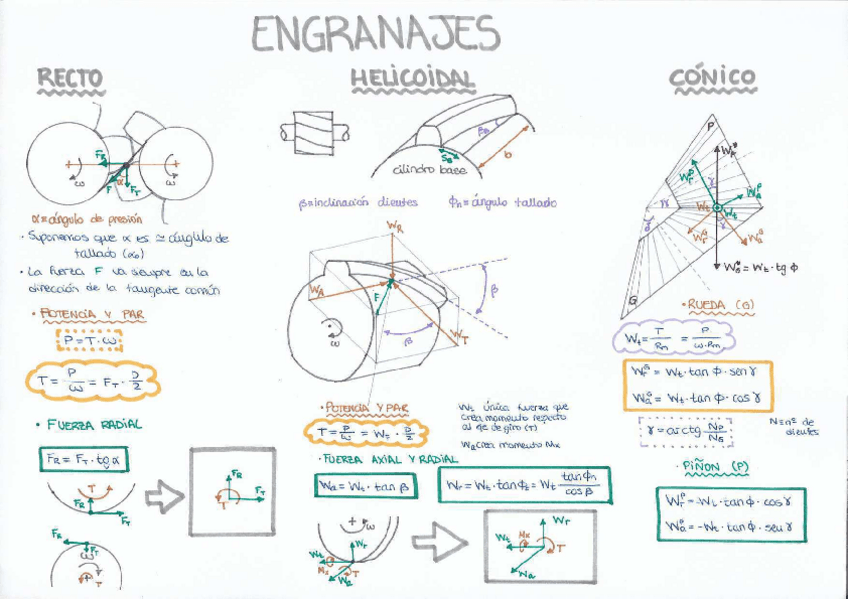 ENGRANAJES
RECTO
F_R
F
α
F_T
ω
ω
α = ángulo de presión
· Suponemos que α es ≃ ángulo de
tallado (α₀)
· La fuerza F va siempre en la
dirección de la tangente común
· POTENCIA Y PAR
P = T · ω
T = P/ω = F_T · D/2
· FUERZA RADIAL
F_R = F_T · tg α
T
F_R
F_T
F_R
F_T
ω
T
F_R
F_T
T
HELICOIDAL
β_B
S_B
b
cilindro base
β = inclinación dientes
ϕn = ángulo tallado
W_R
W_A
F
W_T
β
β
ω
· POTENCIA Y PAR
T = P/ω = W_t · D/2
W_t única fuerza que
crea momento respecto
al eje de giro (T)
W_a crea momento Mx
· FUERZA AXIAL Y RADIAL
W_a = W_t · tan β
W_r = W_t · tan ϕ_t = W_t tan ϕn / cos β
ω
W_r
W_t
T
W_a
W_r
W_t
Mx
T
W_a
CÓNICO
P
γ
W_t
W_t
γ
G
W_t · tg ϕ
· RUEDA (G)
W_t = T/Rm = P/(ω · Rm)
W_r^G = W_t · tan ϕ · sen γ
W_a^G = W_t · tan ϕ · cos γ
γ = arc tg N_P/N_G
N = nº de
dientes
· PIÑON (P)
W_r^P = -W_t · tan ϕ · cos γ
W_a^P = -W_t · tan ϕ · sen γ